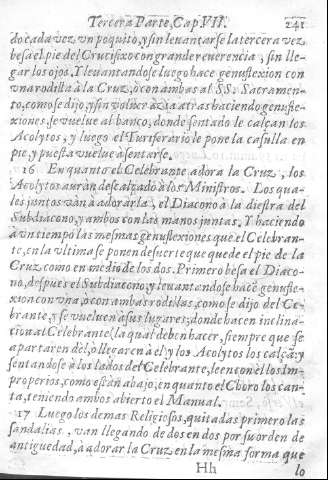 Tercera Parte, Cap. VII. 241
do cada vez vn poquito, y sin leuantarse la tercera vez
besa el pie del Crucifixo con grande reuerencia, sin lle-
gar los ojos. Y leuantandose luego hace genuflexion con
vna rodilla à la Cruz, ò con ambas al SS. Sacramen-
to, como se dijo, y sin voluer azia atras haciendo genufle-
xiones se vuelue al banco, donde sentado le calçan los
Acolytos, y luego el Turiferario le pone la casulla en
pie, y puesta vuelue à sentarse.
16 En quanto el Celebrante adora la Cruz, los
Acolytos auràn descalçado à los Ministros. Los qua-
les juntos van à adorarla, el Diacono à la diestra del
Subdiacono, y ambos con las manos juntas. Y haciendo
à vn tiempo las mesmas genuflexiones que el Celebran-
te, en la vltima se ponen de suerte que quede el pie de la
Cruz como en medio de los dos. Primero besa el Diaco-
no, despues el Subdiacono, y leuantandose hacè genufle-
xion con vna, ò con ambas rodillas, como se dijo del Ce-
brante, y se vueluen à sus lugares; donde hacen inclina-
cion al Celebrante (la qual deben hacer, siempre que se
apartaren dèl, ò llegaren à el) y los Acolytos los calçã: y
sentandose à los lados del Celebrante, leen con èl los Im-
properios, como estàn abajo, en quanto el Choro los can-
ta, teniendo ambos abierto el Manual.
17 Luego los demas Religiosos, quitadas primero las
sandalias, van llegando de dos en dos por su orden de
antiguedad, à adorar la Cruz en la mesma forma que
Hh lo